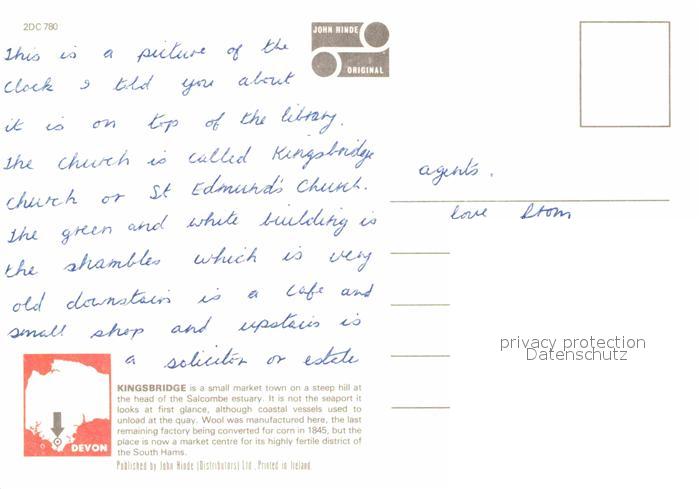 2DC 780
JOHN HINDE
ORIGINAL
This is a picture of the
clock I told you about
it is on top of the library.
The church is called Kingsbridge
church or St Edmund's Church.
The green and white building is
the shambles which is very
old downstairs is a cafe and
small shop and upstairs is
a solicitor or estate
agents.
love from
privacy protection
Datenschutz
DEVON
KINGSBRIDGE is a small market town on a steep hill at
the head of the Salcombe estuary. It is not the seaport it
looks at first glance, although coastal vessels used to
unload at the quay. Wool was manufactured here, the last
remaining factory being converted for corn in 1845, but the
place is now a market centre for its highly fertile district of
the South Hams.
Published by John Hinde (Distributors) Ltd., Printed in Ireland